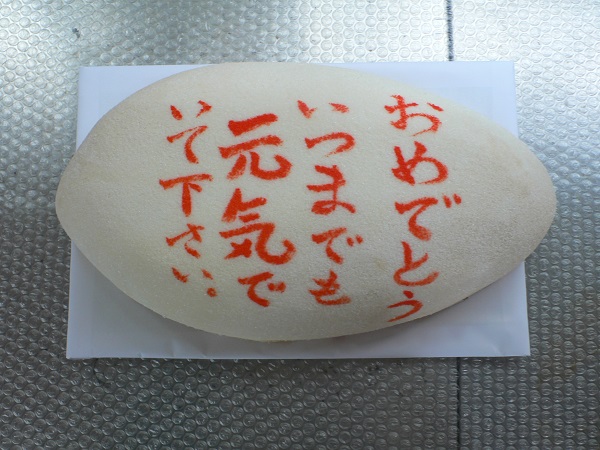 おめでとう
いつまでも
元気で
いて下さい。